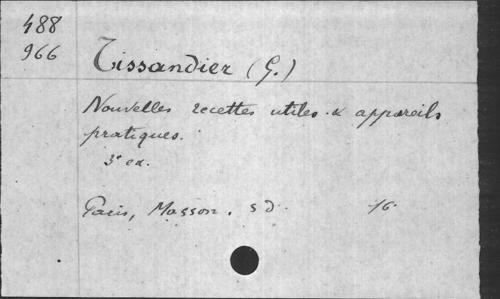 488
966
Tissandier (G.)
Nouvelles recettes utiles & appareils
pratiques.
3e ed.
Paris, Masson. s d. 16.